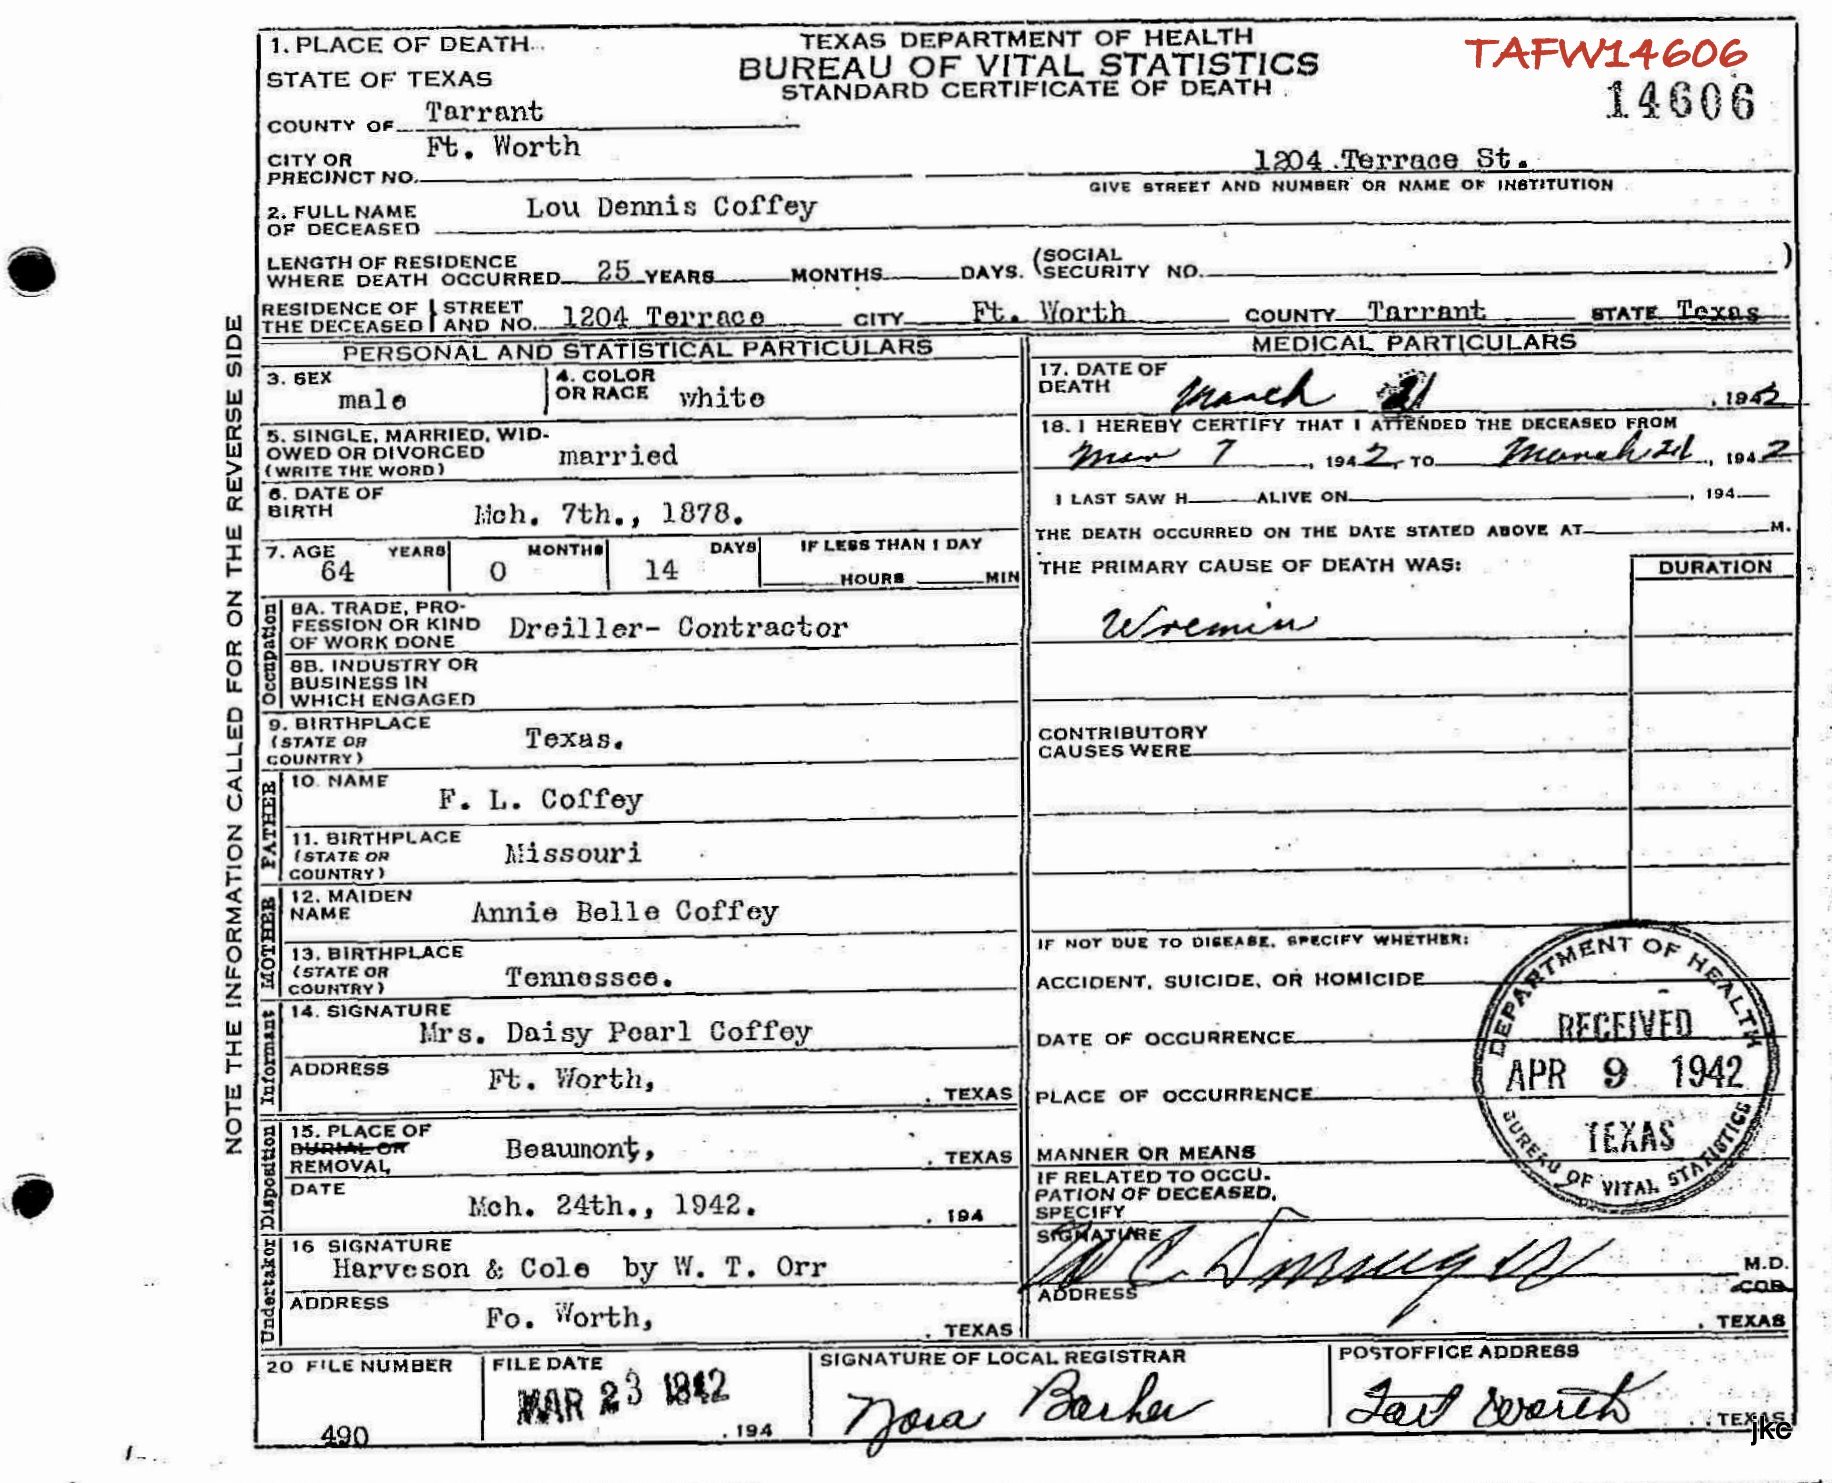 TAFW14606
14606
1. PLACE OF DEATH
STATE OF TEXAS
TEXAS DEPARTMENT OF HEALTH
BUREAU OF VITAL STATISTICS
STANDARD CERTIFICATE OF DEATH
COUNTY OF Tarrant
CITY OR PRECINCT NO. Ft. Worth
1204 Terrace St.
GIVE STREET AND NUMBER OR NAME OF INSTITUTION
2. FULL NAME OF DECEASED Lou Dennis Coffey
LENGTH OF RESIDENCE
WHERE DEATH OCCURRED 25 YEARS MONTHS DAYS. (SOCIAL SECURITY NO. )
RESIDENCE OF THE DECEASED STREET AND NO. 1204 Terrace CITY Ft. Worth COUNTY Tarrant STATE Texas
NOTE THE INFORMATION CALLED FOR ON THE REVERSE SIDE
PERSONAL AND STATISTICAL PARTICULARS
3. SEX male
4. COLOR OR RACE white
5. SINGLE, MARRIED, WIDOWED OR DIVORCED
(WRITE THE WORD) married
6. DATE OF BIRTH Mch. 7th., 1878.
7. AGE YEARS MONTHS DAYS IF LESS THAN 1 DAY
64 0 14 HOURS MIN
Occupation
8A. TRADE, PROFESSION OR KIND OF WORK DONE Dreiller- Contractor
8B. INDUSTRY OR BUSINESS IN WHICH ENGAGED
9. BIRTHPLACE (STATE OR COUNTRY) Texas.
FATHER
10. NAME F. L. Coffey
11. BIRTHPLACE (STATE OR COUNTRY) Missouri
MOTHER
12. MAIDEN NAME Annie Belle Coffey
13. BIRTHPLACE (STATE OR COUNTRY) Tennessee.
Informant
14. SIGNATURE Mrs. Daisy Pearl Coffey
ADDRESS Ft. Worth, , TEXAS
Disposition
15. PLACE OF BURIAL OR REMOVAL Beaumont, , TEXAS
DATE Mch. 24th., 1942. , 194
Undertaker
16 SIGNATURE
Harveson & Cole by W. T. Orr
ADDRESS Fo. Worth, , TEXAS
MEDICAL PARTICULARS
17. DATE OF DEATH March 21, 1942
18. I HEREBY CERTIFY THAT I ATTENDED THE DECEASED FROM
Mar 7, 1942, TO March 21, 1942
I LAST SAW H ALIVE ON , 194
THE DEATH OCCURRED ON THE DATE STATED ABOVE AT M.
THE PRIMARY CAUSE OF DEATH WAS: DURATION
CONTRIBUTORY CAUSES WERE
IF NOT DUE TO DISEASE, SPECIFY WHETHER:
ACCIDENT, SUICIDE, OR HOMICIDE
DATE OF OCCURRENCE
PLACE OF OCCURRENCE
MANNER OR MEANS
IF RELATED TO OCCUPATION OF DECEASED, SPECIFY
DEPARTMENT OF HEALTH
RECEIVED
APR 9 1942
TEXAS
BUREAU OF VITAL STATISTICS
SIGNATURE M.D.
COR.
ADDRESS , TEXAS
20 FILE NUMBER 490
FILE DATE MAR 23 1942 , 194
SIGNATURE OF LOCAL REGISTRAR
Nora Barker
POSTOFFICE ADDRESS
Fort Worth , TEXAS
jkc